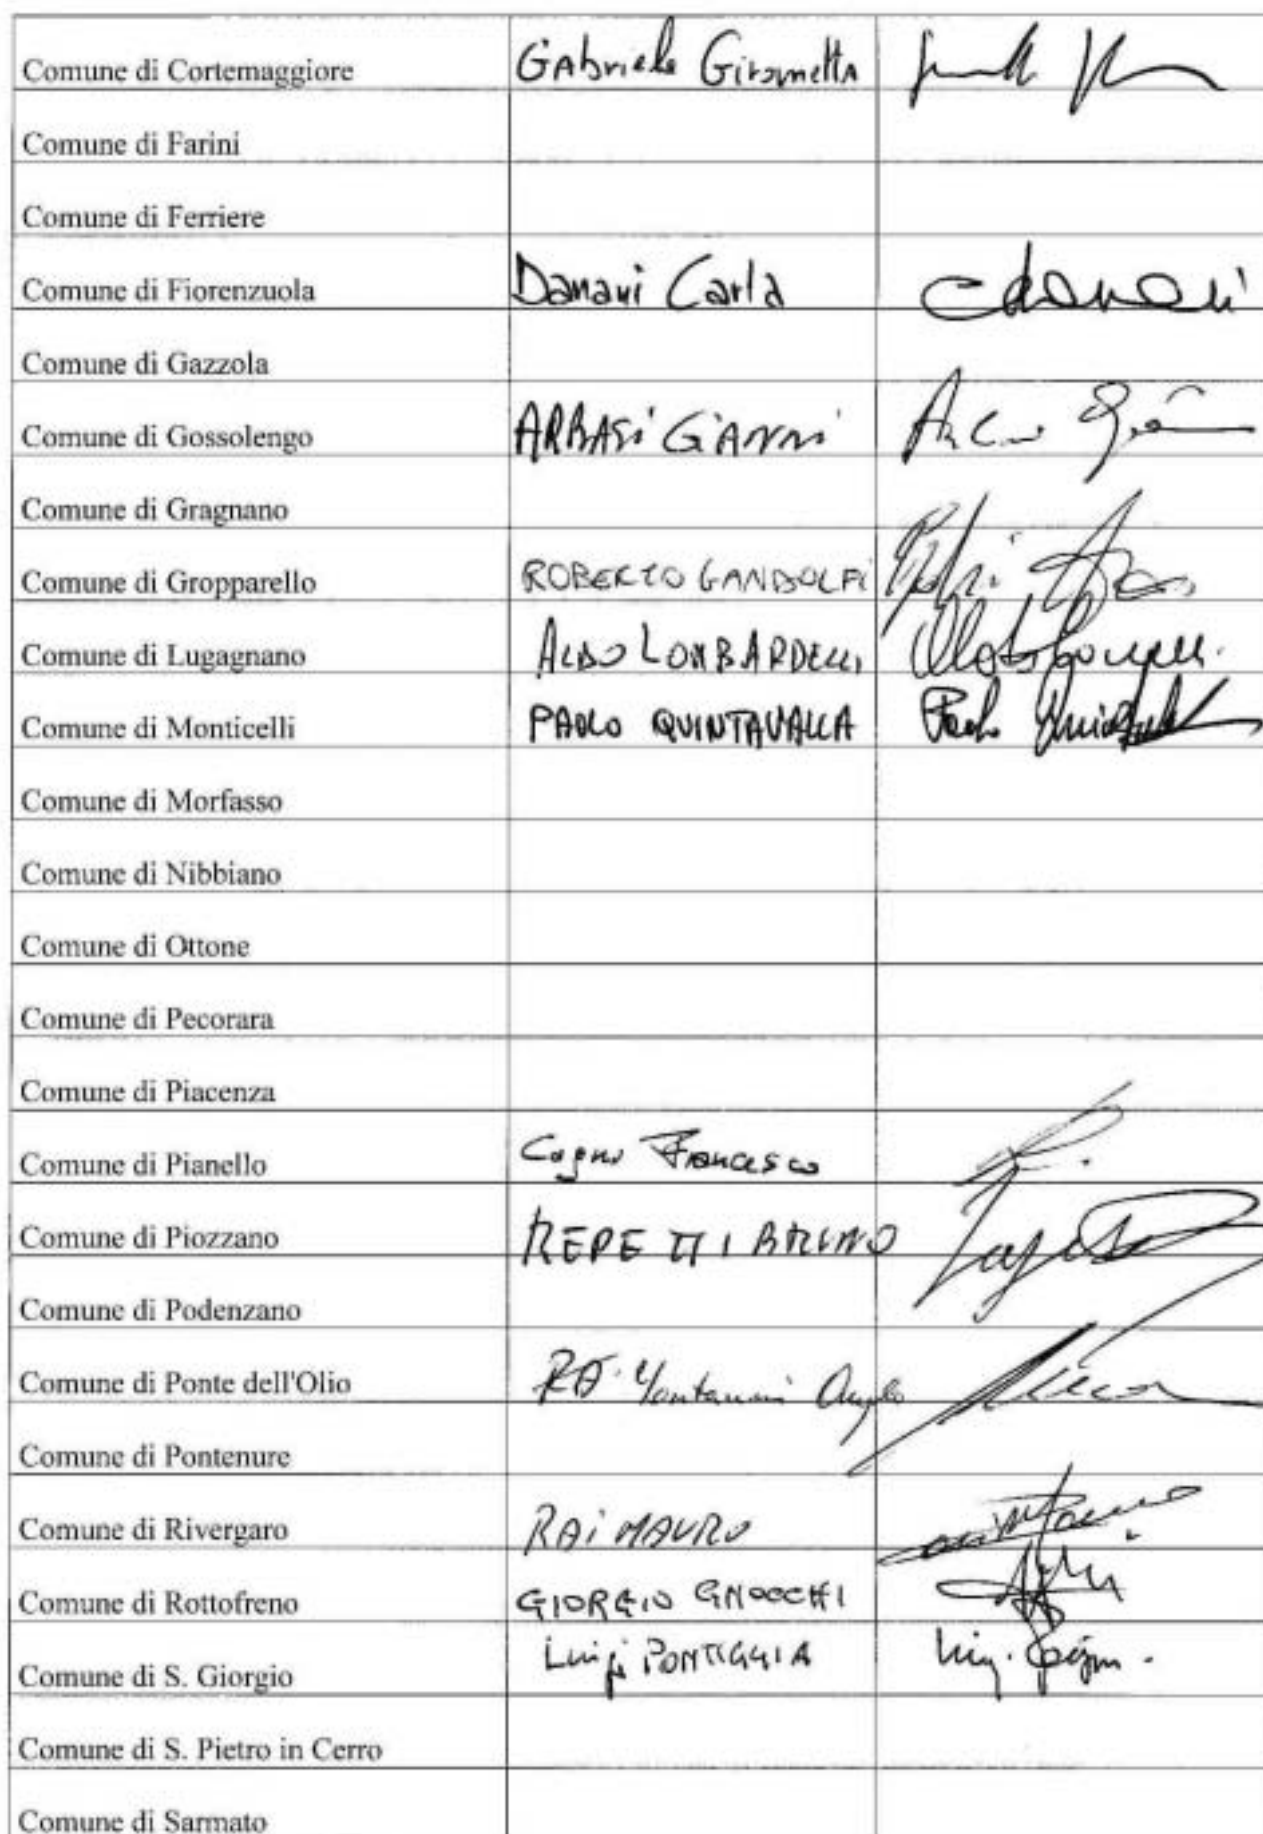 Comune di Cortemaggiore Gabriele Girometta
Comune di Farini
Comune di Ferriere
Comune di Fiorenzuola Danani Carla
Comune di Gazzola
Comune di Gossolengo ARBASI GIANNI
Comune di Gragnano
Comune di Gropparello ROBERTO GANDOLFI
Comune di Lugagnano ALDO LOMBARDELLI
Comune di Monticelli PAOLO QUINTAVALLA Paolo
Comune di Morfasso
Comune di Nibbiano
Comune di Ottone
Comune di Pecorara
Comune di Piacenza
Comune di Pianello Cogni Francesco
Comune di Piozzano REPETTI BRUNO
Comune di Podenzano
Comune di Ponte dell'Olio Angelo
Comune di Pontenure
Comune di Rivergaro RAI MAURO
Comune di Rottofreno GIORGIO GNOCCHI
Comune di S. Giorgio Luigi PONTIGGIA
Comune di S. Pietro in Cerro
Comune di Sarmato